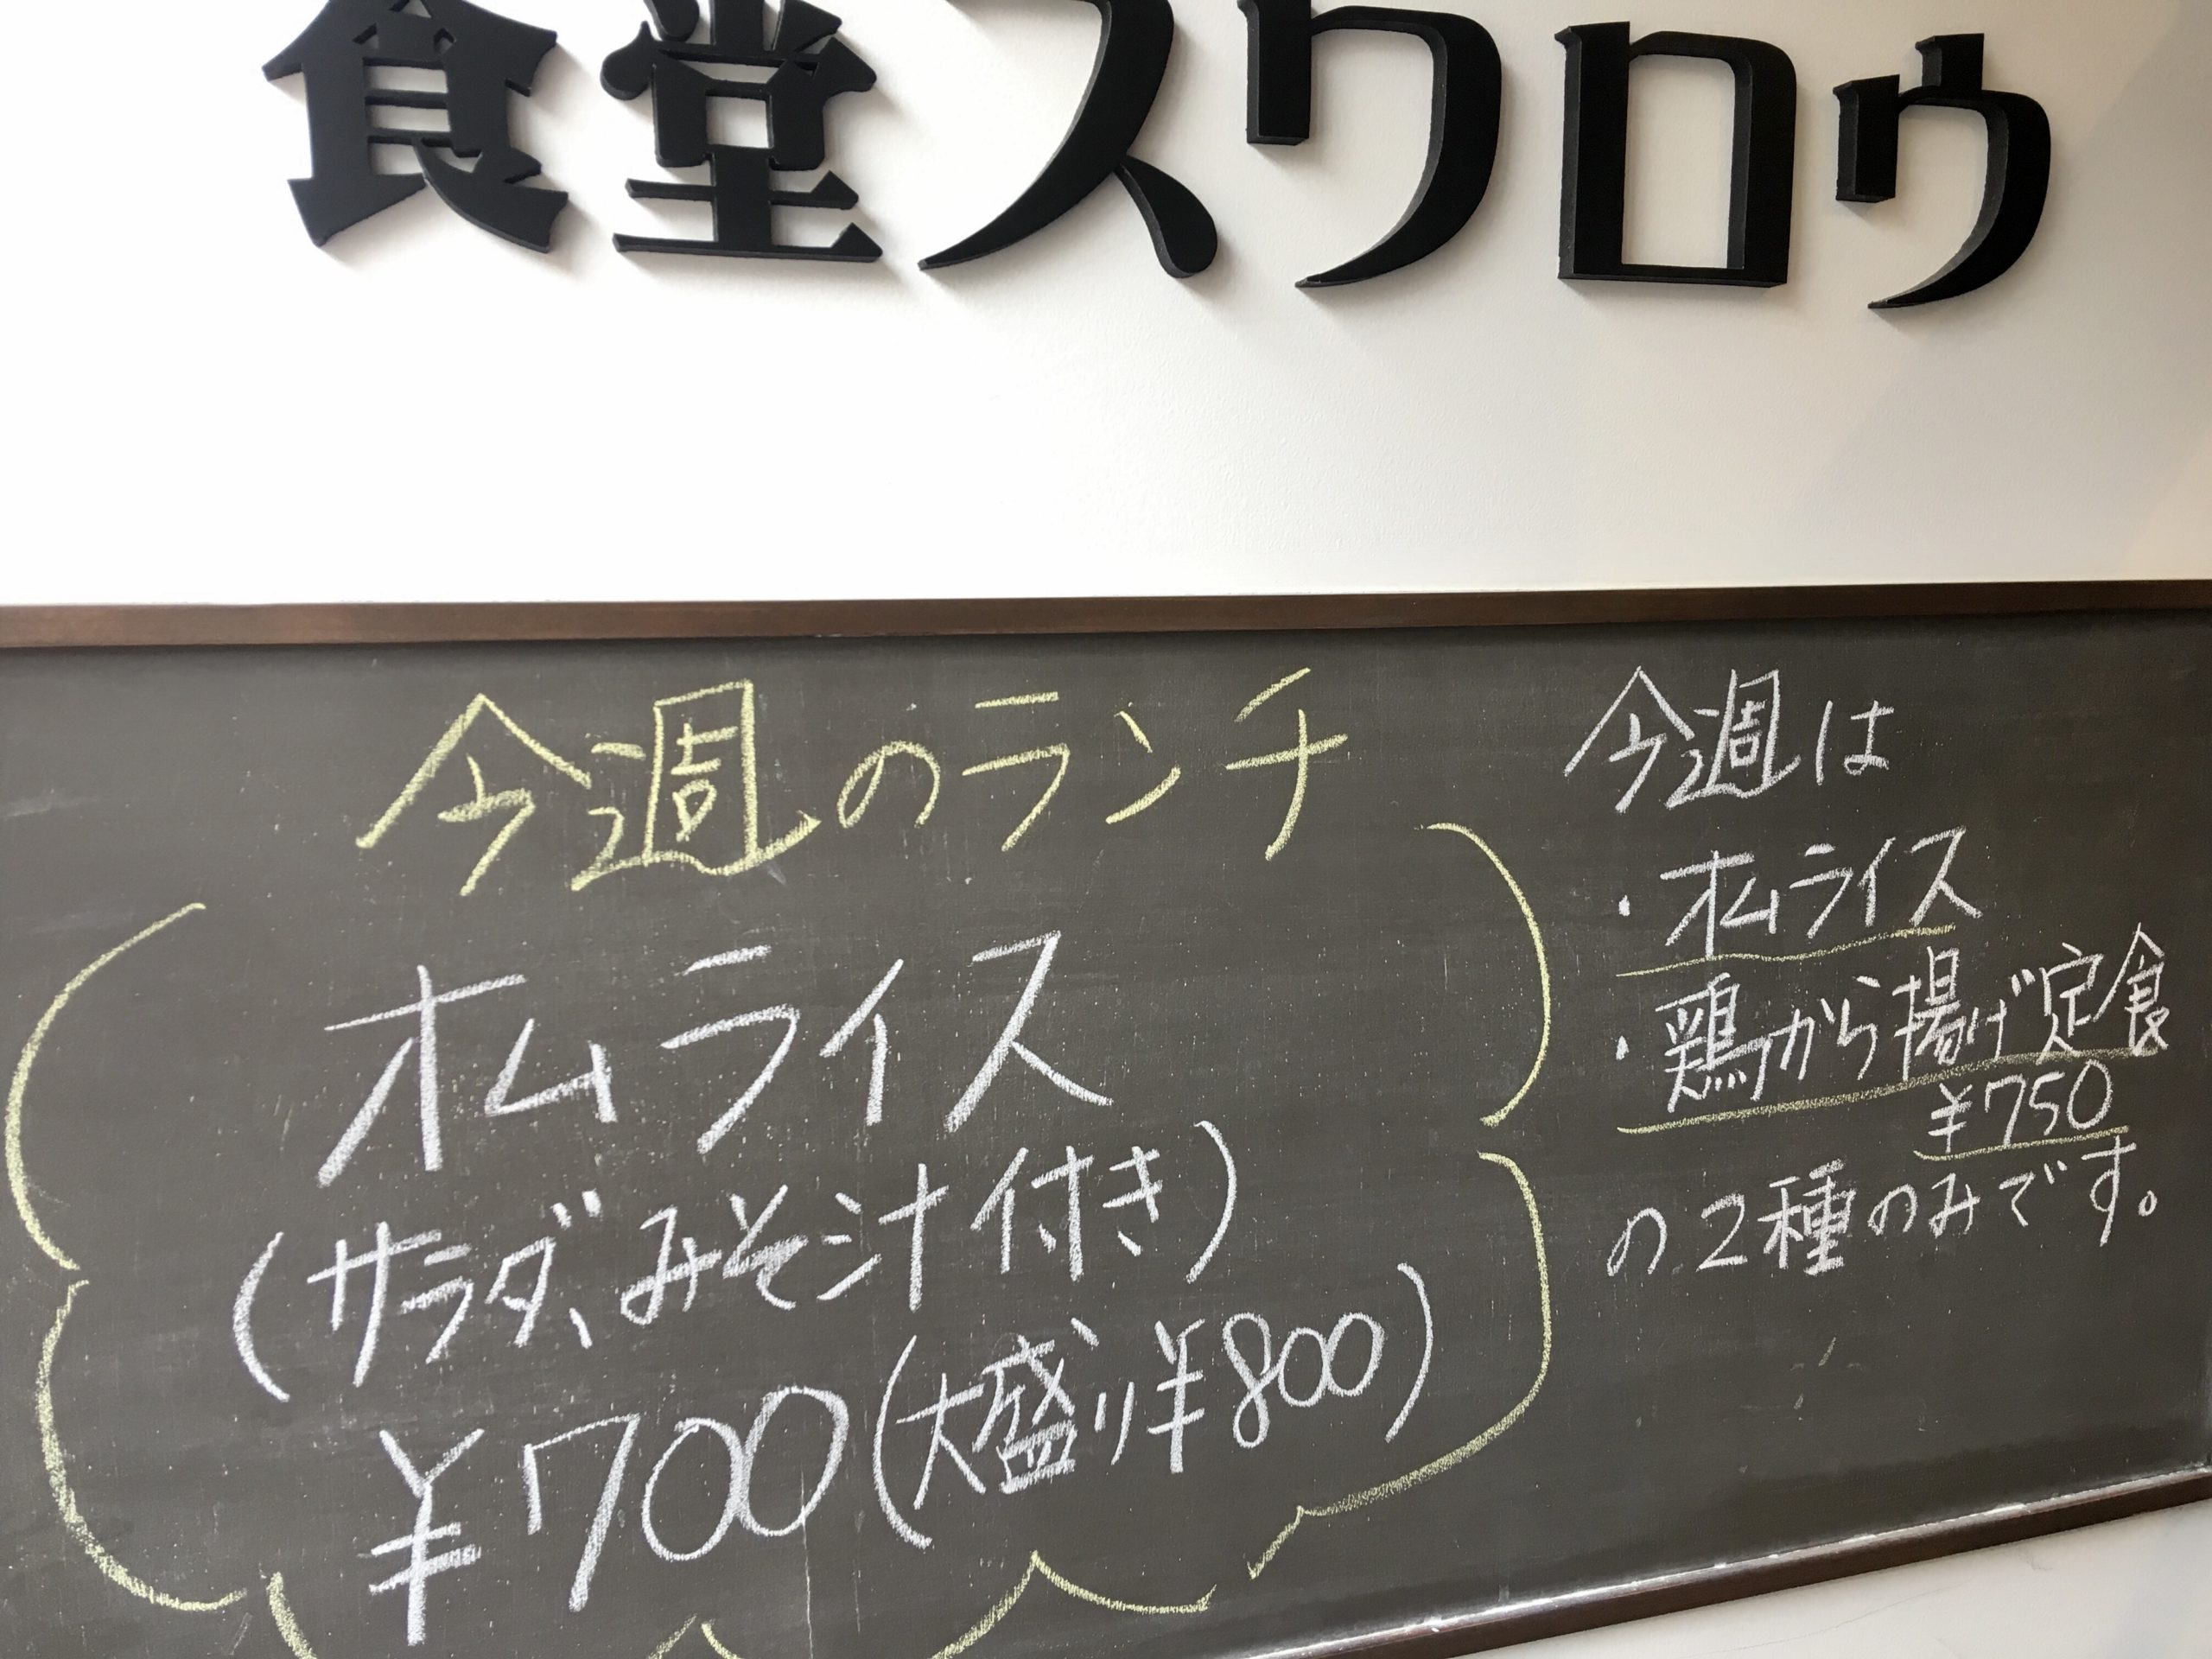 食堂スワロウ
今週のランチ
オムライス
(サラダ、みそ汁付き)
¥700(大盛り¥800)
今週は
・オムライス
・鶏から揚げ定食
¥750
の2種のみです。